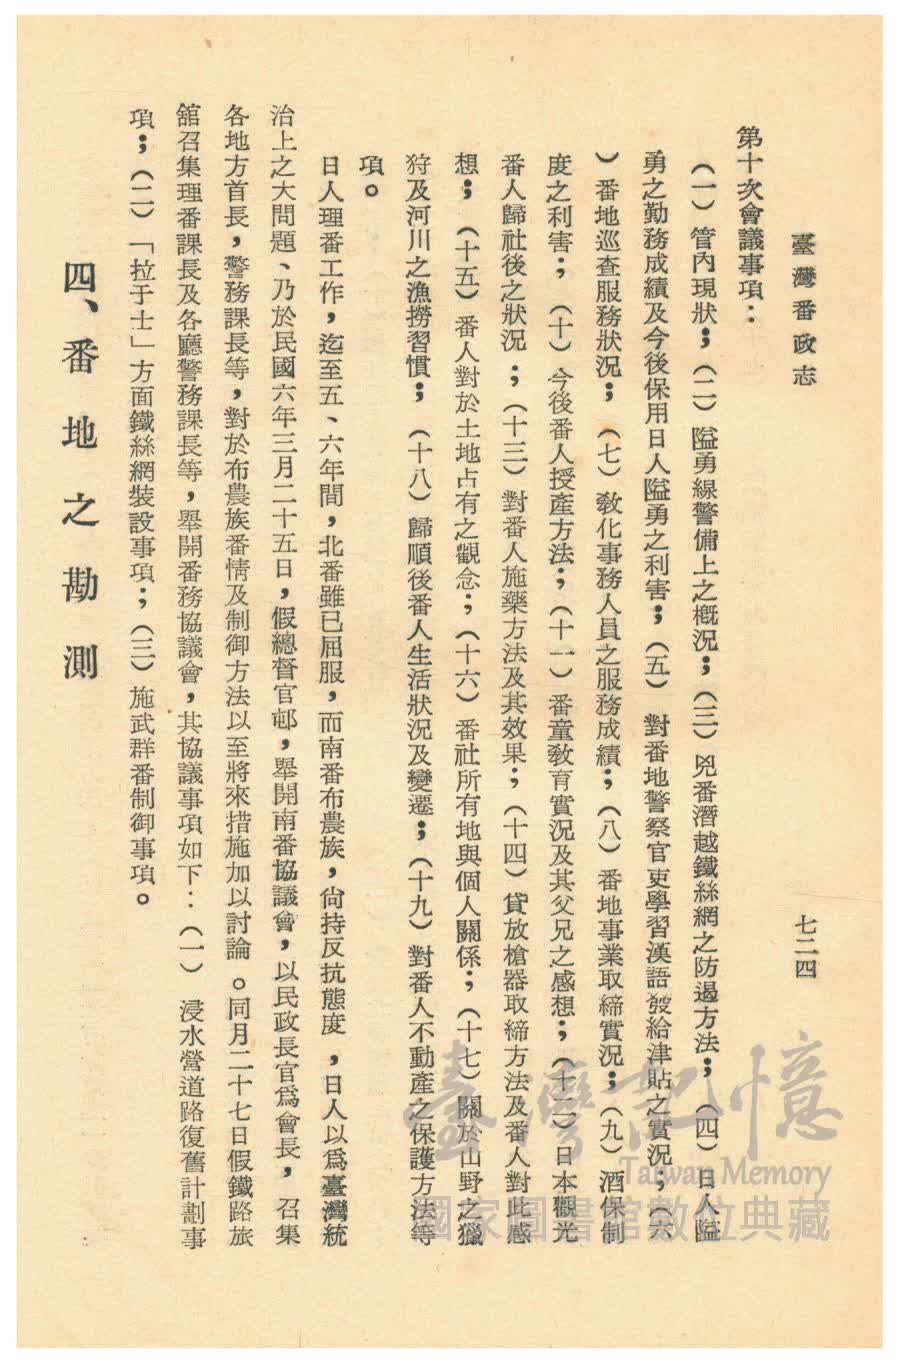 臺灣番政志
七二四
第十次會議事項：
（一）管內現狀；（二）隘勇線警備上之概況；（三）兇番潛越鐵絲網之防遏方法；（四）日人隘
勇之勤務成績及今後保用日人隘勇之利害；（五）對番地警察官吏學習漢語發給津貼之實況；（六
）番地巡查服務狀況；（七）敎化事務人員之服務成績；（八）番地事業取締實況；（九）酒保制
度之利害；（十）今後番人授產方法；（十一）番童敎育實況及其父兄之感想；（十二）日本觀光
番人歸社後之狀況；（十三）對番人施藥方法及其效果；（十四）貸放槍器取締方法及番人對此感
想；（十五）番人對於土地占有之觀念；（十六）番社所有地與個人關係；（十七）關於山野之獵
狩及河川之漁撈習慣；（十八）歸順後番人生活狀況及變遷；（十九）對番人不動產之保護方法等
項。
日人理番工作，迄至五、六年間，北番雖已屈服，而南番布農族，尙持反抗態度，日人以爲臺灣統
治上之大問題、乃於民國六年三月二十五日，假總督官邸，舉開南番協議會，以民政長官爲會長，召集
各地方首長，警務課長等，對於布農族番情及制御方法以至將來措施加以討論。同月二十七日假鐵路旅
舘召集理番課長及各廳警務課長等，舉開番務協議會，其協議事項如下：（一）浸水營道路復舊計劃事
項；（二）「拉于士」方面鐵絲網裝設事項；（三）施武群番制御事項。
四、番地之勘測
臺灣記憶
Taiwan Memory
國家圖書館數位典藏